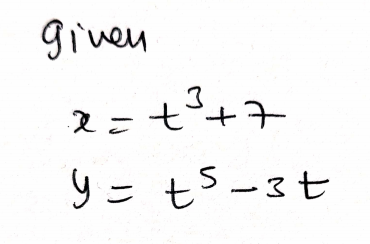 given
x = t³ + 7
y = t⁵ - 3t